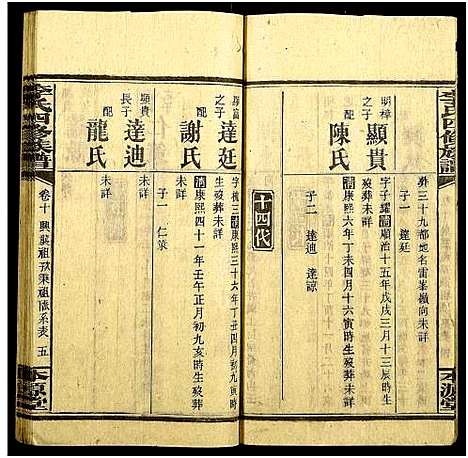 李氏四修族譜
本源堂
葬三十九都地名雷峯嶺向未詳
子一 達延
明樟之子 顯貴
字子耀清順治十五年戊戌三月十三辰時生
歿葬未詳
配 陳氏
清康熙六年丁未四月十六寅時生歿葬未詳
子二 達迪 達諒
十四代
顯富之子 達延
字梳三清康熙三十六年丁丑四月初九寅時
生歿葬未詳
配 謝氏
清康熙四十一年壬午正月初九亥時生歿葬
未詳
子一 仁策
顯貴長子 達迪
未詳
配 龍氏
未詳
李氏四修族譜
卷十 興
祖秉祖隲系表 五
本源堂